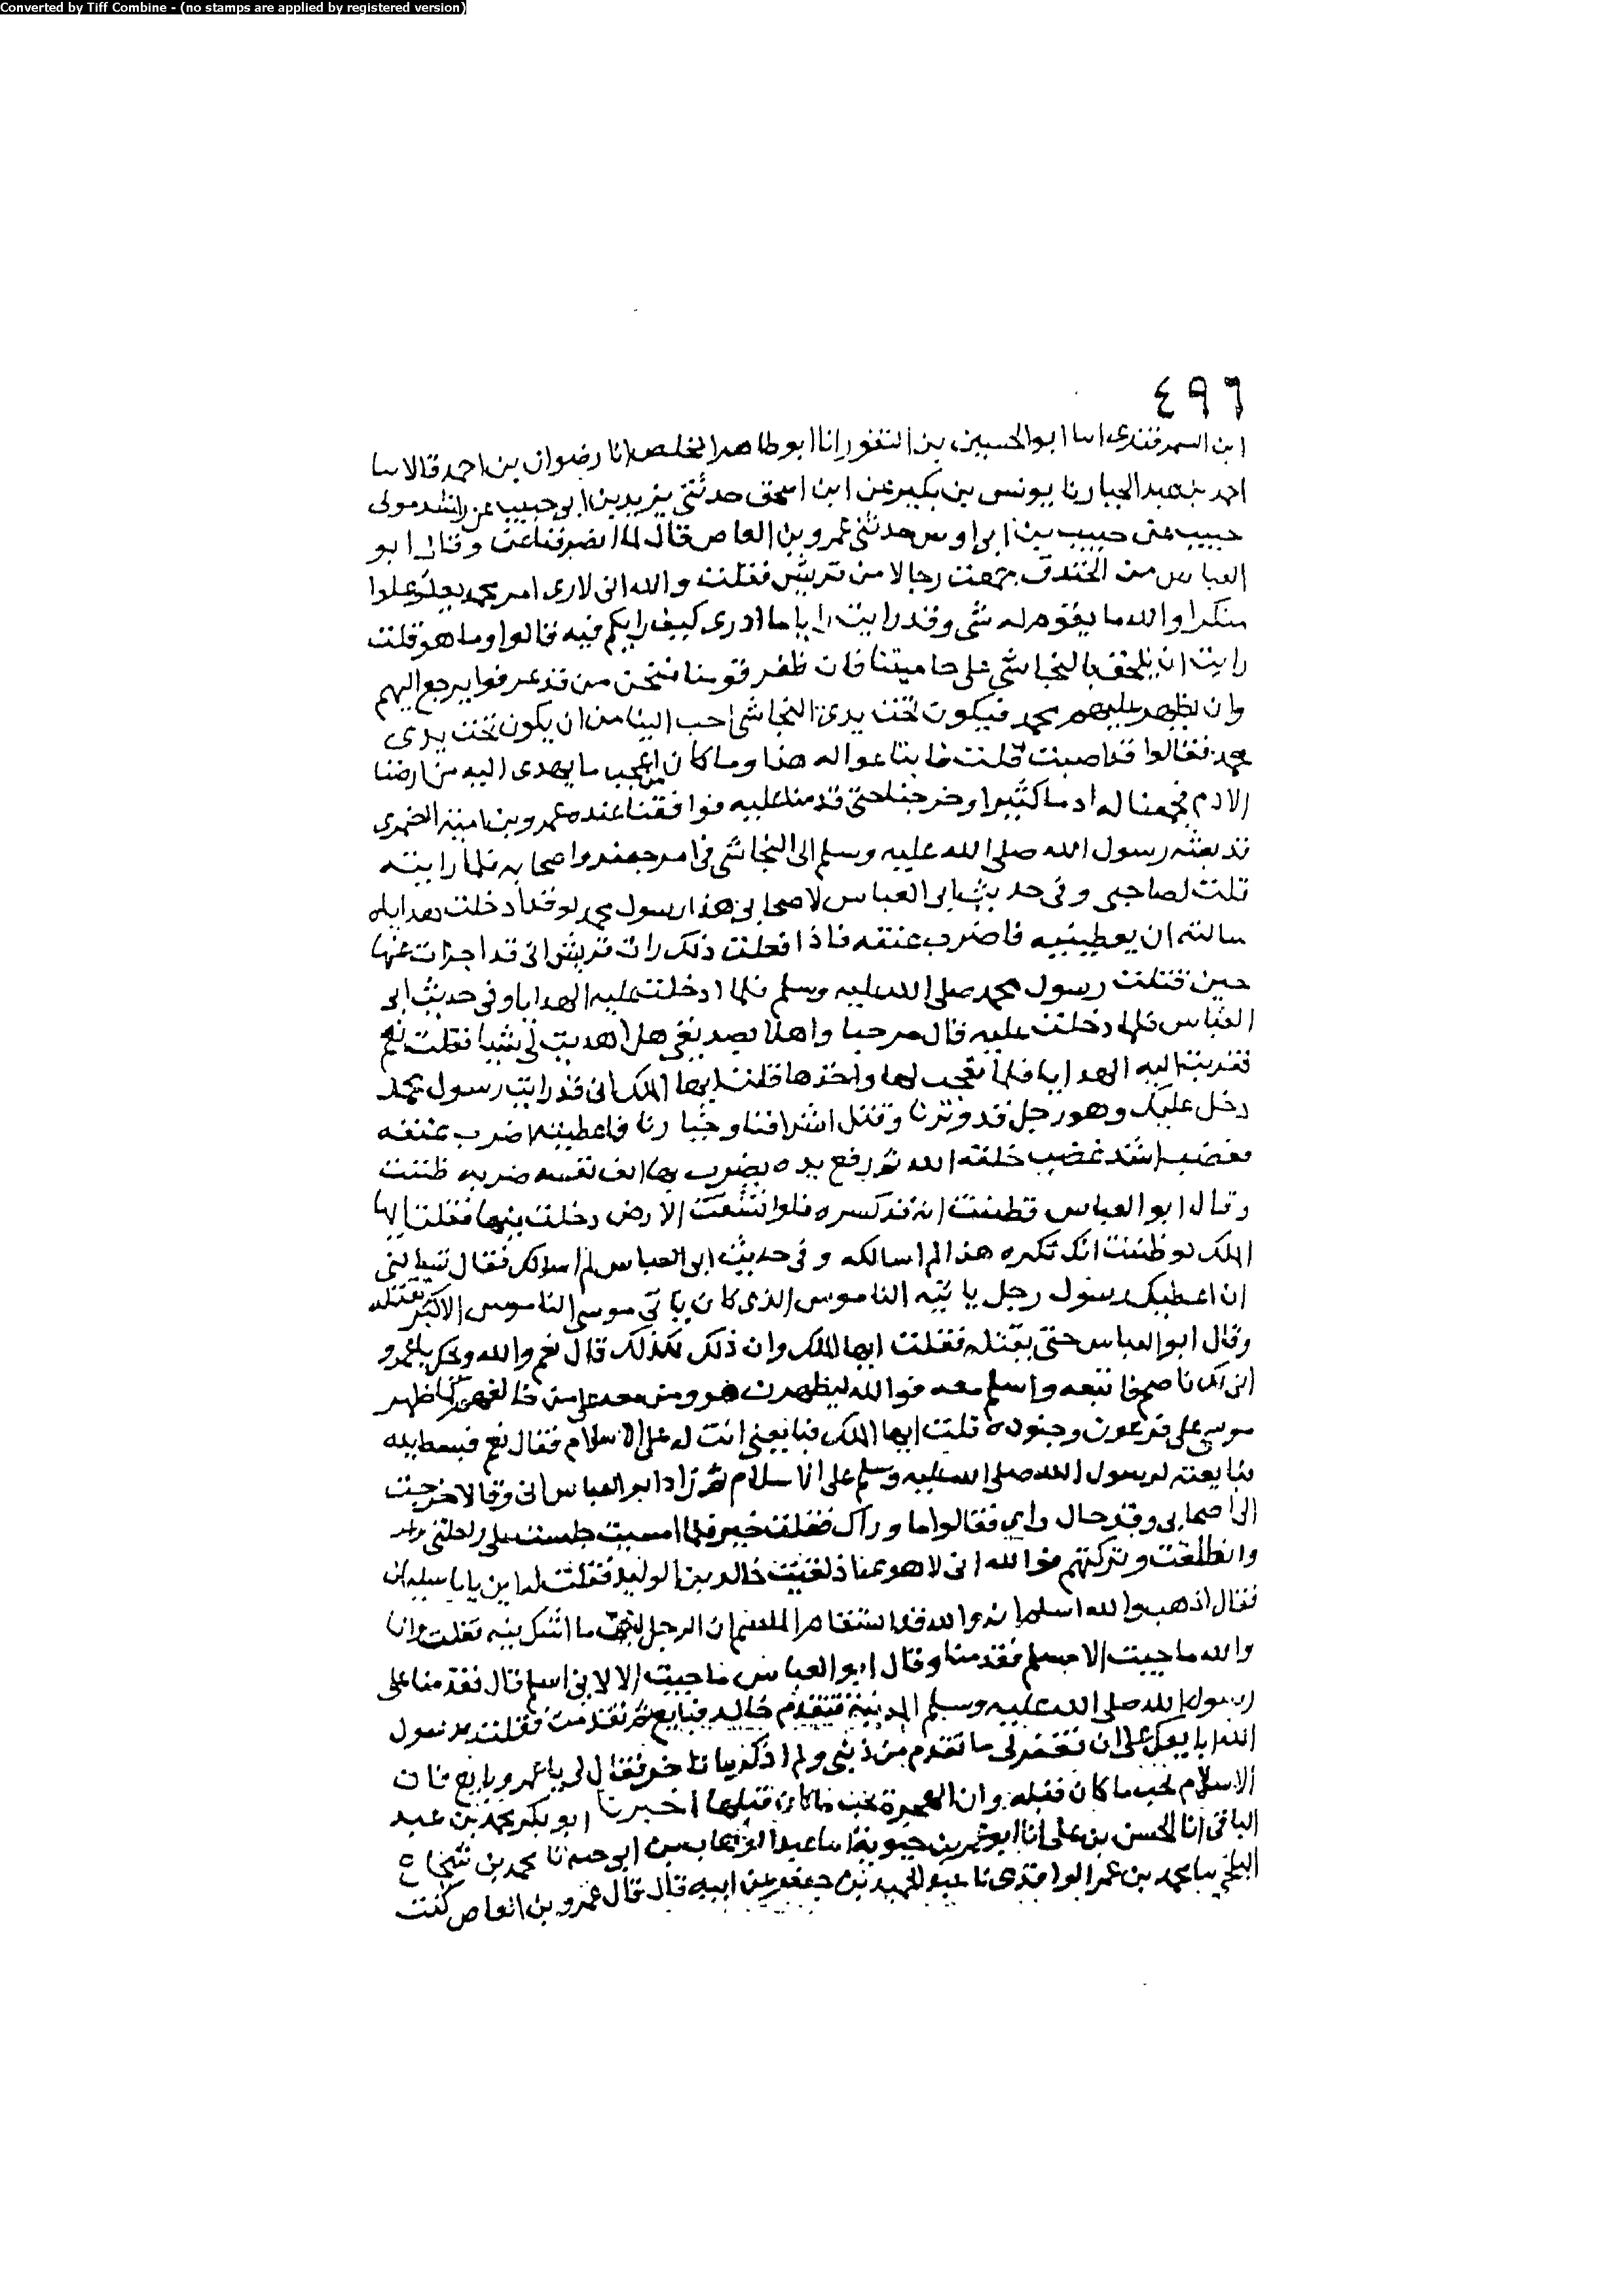 Converted by Tiff Combine - (no stamps are applied by registered version)
٤٩٦
ابن السمرقندى انا ابو الحسين بن النقور انا ابو طاهر المخلص انا رضوان بن احمد قالا سا
احمد بن عبد الجبار نا يونس بن بكير عن ابن اسحق حدثنى يزيد بن ابى حبيب عن راشد مولى
حبيب عن حبيب بن ابى اوس حدثنى عمرو بن العاص قال لما انصرفنا عن وقال ابو
العباس من الخندق جمعت رجالا من قريش فقلت والله انى لارى امر محمد يعلو علوا
منكرا والله ما يقوم له شى وقد رايت رايا ما ادرى كيف رايكم فيه قالوا وما هو قلت
رايت ان نلحق بالنجاشى على حاميتنا فان ظفر قومنا فنحن من قد عرفوا يرجع اليهم
وان يظهر عليهم محمد فيكون تحت يدى النجاشى احب الينا من ان يكون تحت يدى
محمد فقالوا قد اصبت قلت فابتاعوا له هذا وما كان من اعجب ما يهدى اليه من ارضنا
الادم فجمعنا له ادما كثيرا وخرجنا حتى قدمنا عليه فوافقنا عنده عمرو بن امية الضمرى
قد بعثه رسول الله صلى الله عليه وسلم الى النجاشى فى امر جعفر واصحابه فلما رايته
قلت لصاحبى وفى حديث ابى العباس لاصحابى هذا رسول محمد لو قد ادخلت هداياه
سالته ان يعطينيه فاضرب عنقه فاذا فعلت ذلك رات قريش انى قد اجزات عنها
حين قتلت رسول محمد صلى الله عليه وسلم فلما ادخلت عليه الهدايا وفى حديث ابى
العباس فلما دخلت عليه قال مرحبا واهلا بصديقى هل اهديت لى شيا فقلت نعم
فقربت اليه الهدايا فلما تعجب لها واخذها قلت ايها الملك انى قد رايت رسول محمد
دخل عليك وهو رجل قد وترنا وقتل اشرافنا وخيارنا فاعطينيه اضرب عنقه
فغضب اشد غضب خلقه الله ثم رفع يده يضرب بها انف نفسه ضربه ظننت
وقال ابو العباس فظننت انه قد كسره فلو انشقت الارض دخلت فيها فقلت ايها
الملك لو ظننت انك تكره هذا لم اسالكه وفى حديث ابى العباس لم اسالك فقال تسالنى
ان اعطيك رسول رجل ياتيه الناموس الذى كان ياتى موسى الناموس الاكبر تقتله
وقال ابو العباس حتى يقتله فقلت ايها الملك وان ذلك لكذلك قال نعم والله ويحك يا عمرو
انى لك ناصح فاتبعه واسلم معه فوالله ليظهرن هو ومن معه على من خالفهم كما ظهر
موسى على فرعون وجنوده قلت ايها الملك فبايعنى انت له على الاسلام فقال نعم فبسط يده
فبايعته لرسول الله صلى الله عليه وسلم على الاسلام ثم زاد ابو العباس انى وقالا خرجت
الى اصحابى وقد حال رايى فقالوا ما وراك فقلت خير فلما امسيت جلست على راحلتى
وانطلقت وتركتهم فوالله انى لاهوى هنا ذلقيت خالد بن الوليد فقلت له اين يا با سليمان
فقال اذهب والله اسلم انه والله قد استقام المنسم ان الرجل لنبى ما اشك فيه فقلت وانا
والله ما جيت الا مسلم فقدمنا وقال ابو العباس ما جيت الا لانى اسلم قال فقدمنا على
رسول الله صلى الله عليه وسلم المدينة فتقدم خالد فبايع ثم تقدمت فقلت يرسول
الله ابايعك على ان تغفر لى ما تقدم من ذنبى ولم اذكر ما تاخر فقال لى يا عمرو بايع فان
الاسلام يجب ما كان قبله وان الهجرة تجب ما كان قبلها اخبرنا ابو بكر محمد بن عبد
الباقى انا الحسن بن على انا ابو عمر بن حيوية انا عبد الوهاب بن ابى حيه نا محمد بن شجاع
البلخى نا محمد بن عمر الواقدى نا عبد الحميد بن جعفر عن ابيه قال قال عمرو بن العاص كنت